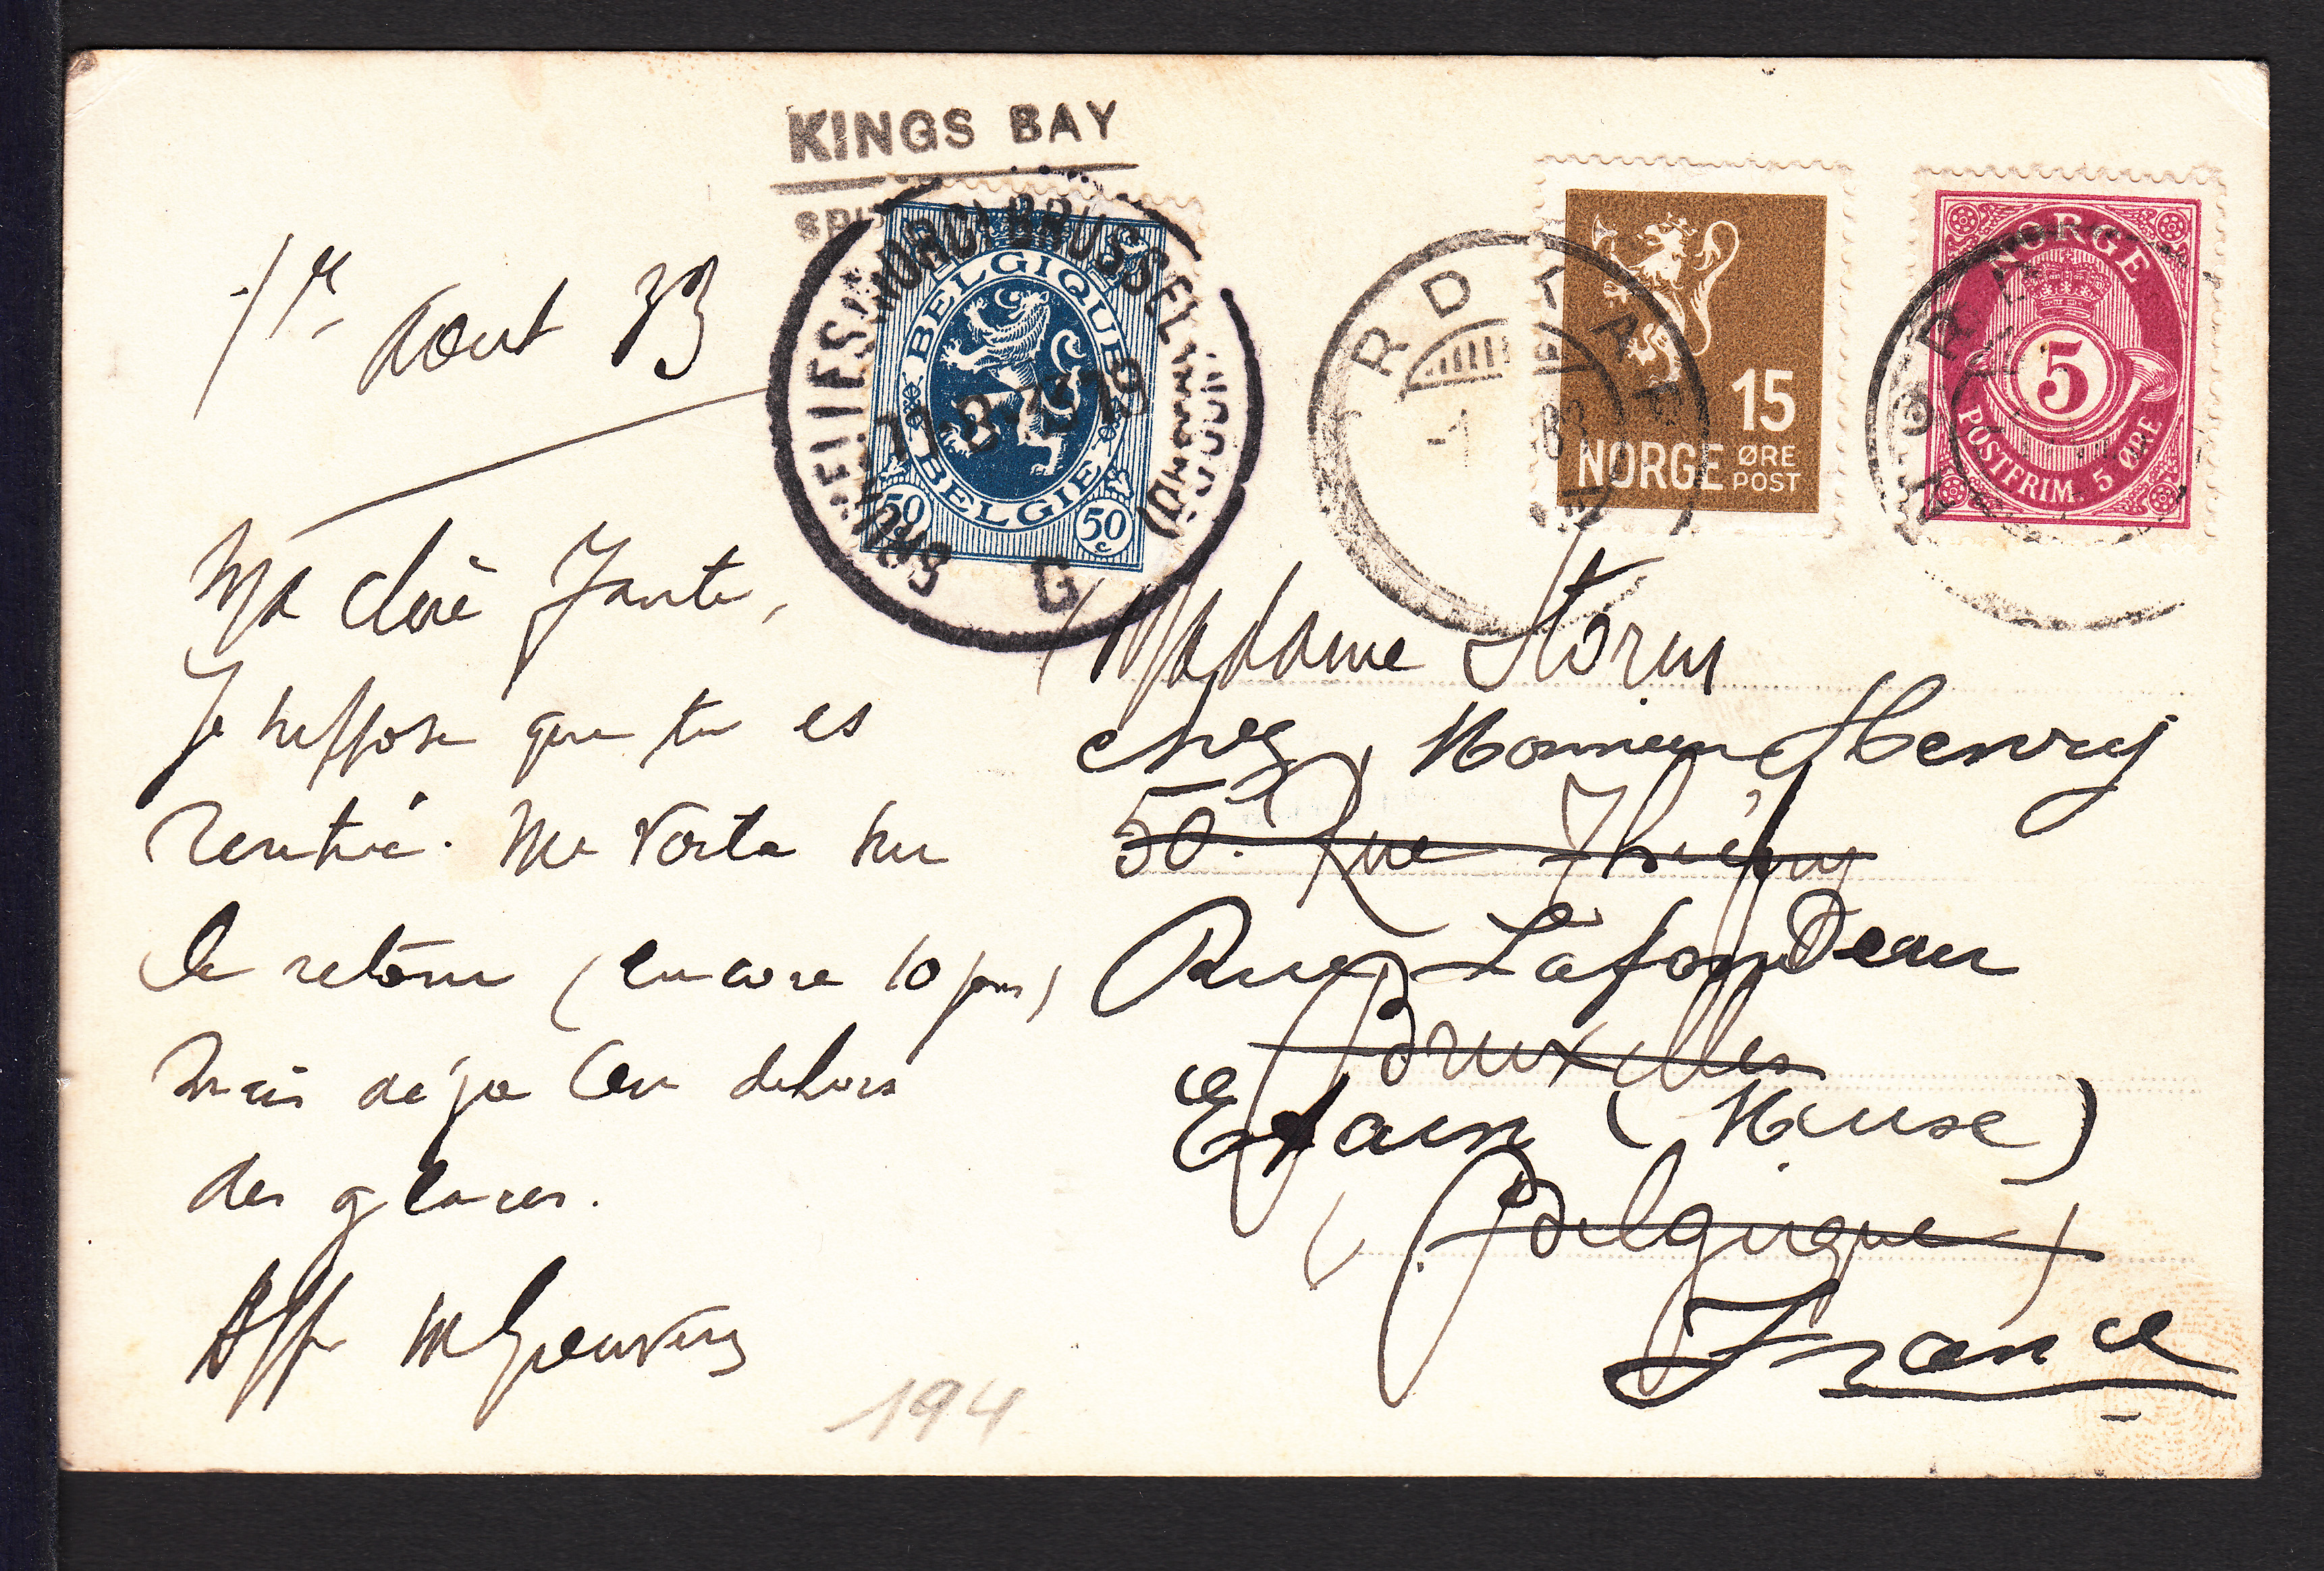 KINGS BAY
BRUXELLES (NORD) BRUSSEL
11-8- 19
G
BELGIQUE
BELGIE
50 50 c
15
NORGE ØRE
POST
NORGE
5
POSTFRIM. 5 ØRE
1er Aout 33
Ma chère Tante,
Je suppose que tu es
rentrée. Me voila sur
le retour (encore 10 jours)
mais déja en dehors
des glaces.
Madame Storm
chez Monsieur Henry
50. Rue Thiéfry
Rue Lafondeau
Bruxelles
Etain (Meuse)
(Belgique)
France
194